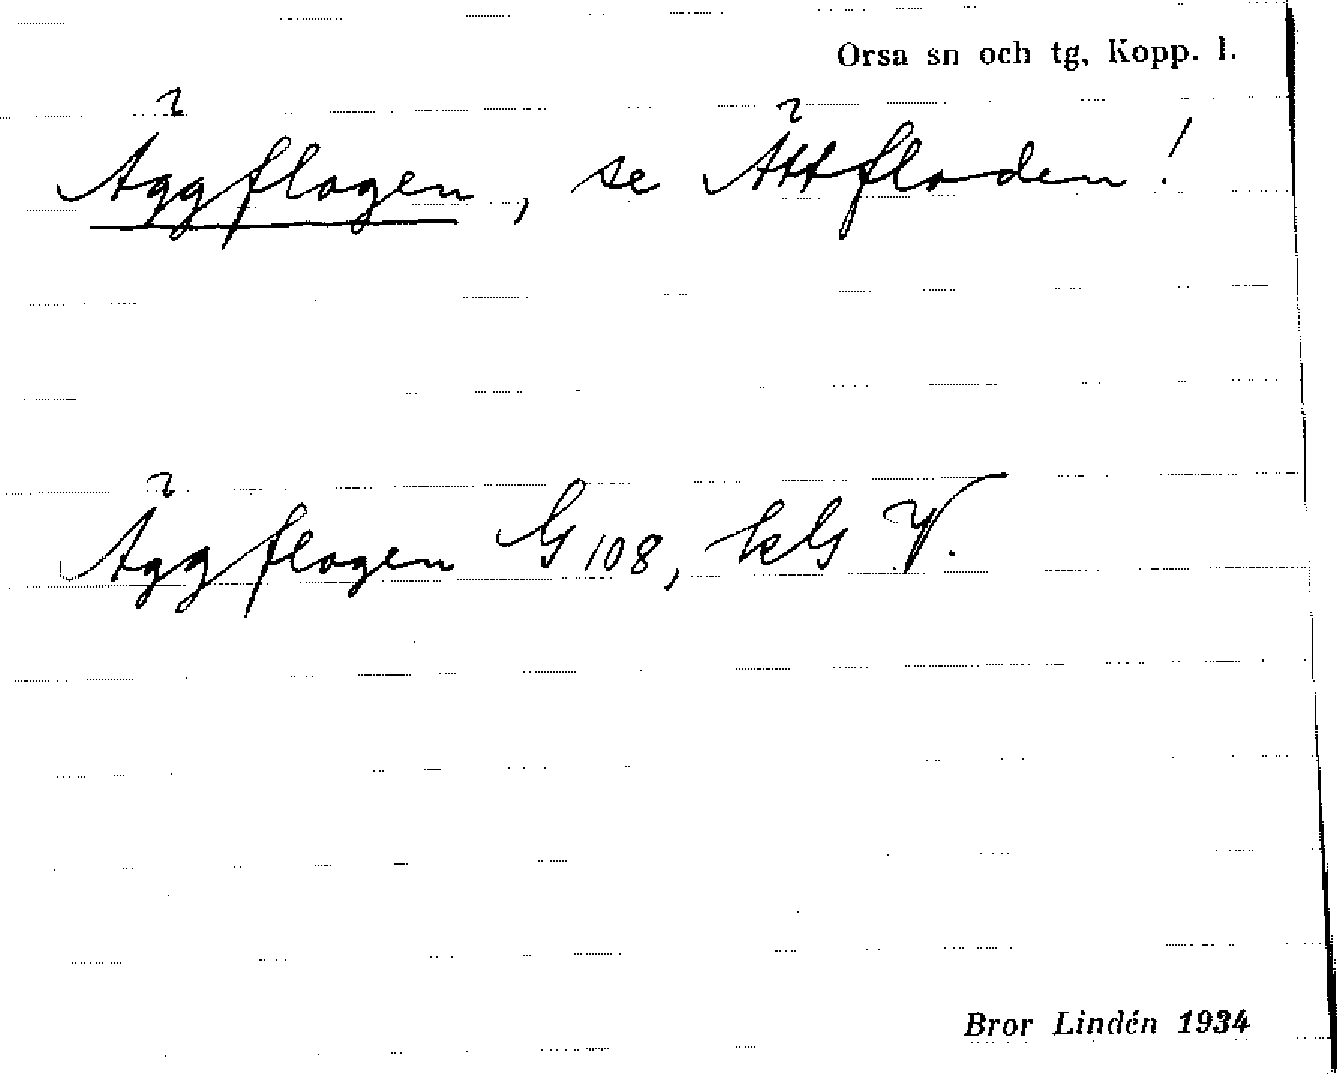 Orsa sn och tg, Kopp. l.
Äggflogen, se Ättfloden!
Äggflogen G 108, kG V.
Bror Lindén 1934